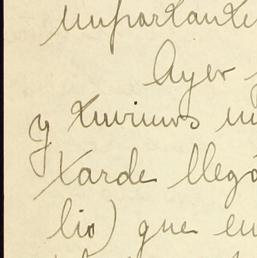 importante
Ayer
y tuvimos un
tarde llegó
lio) que en